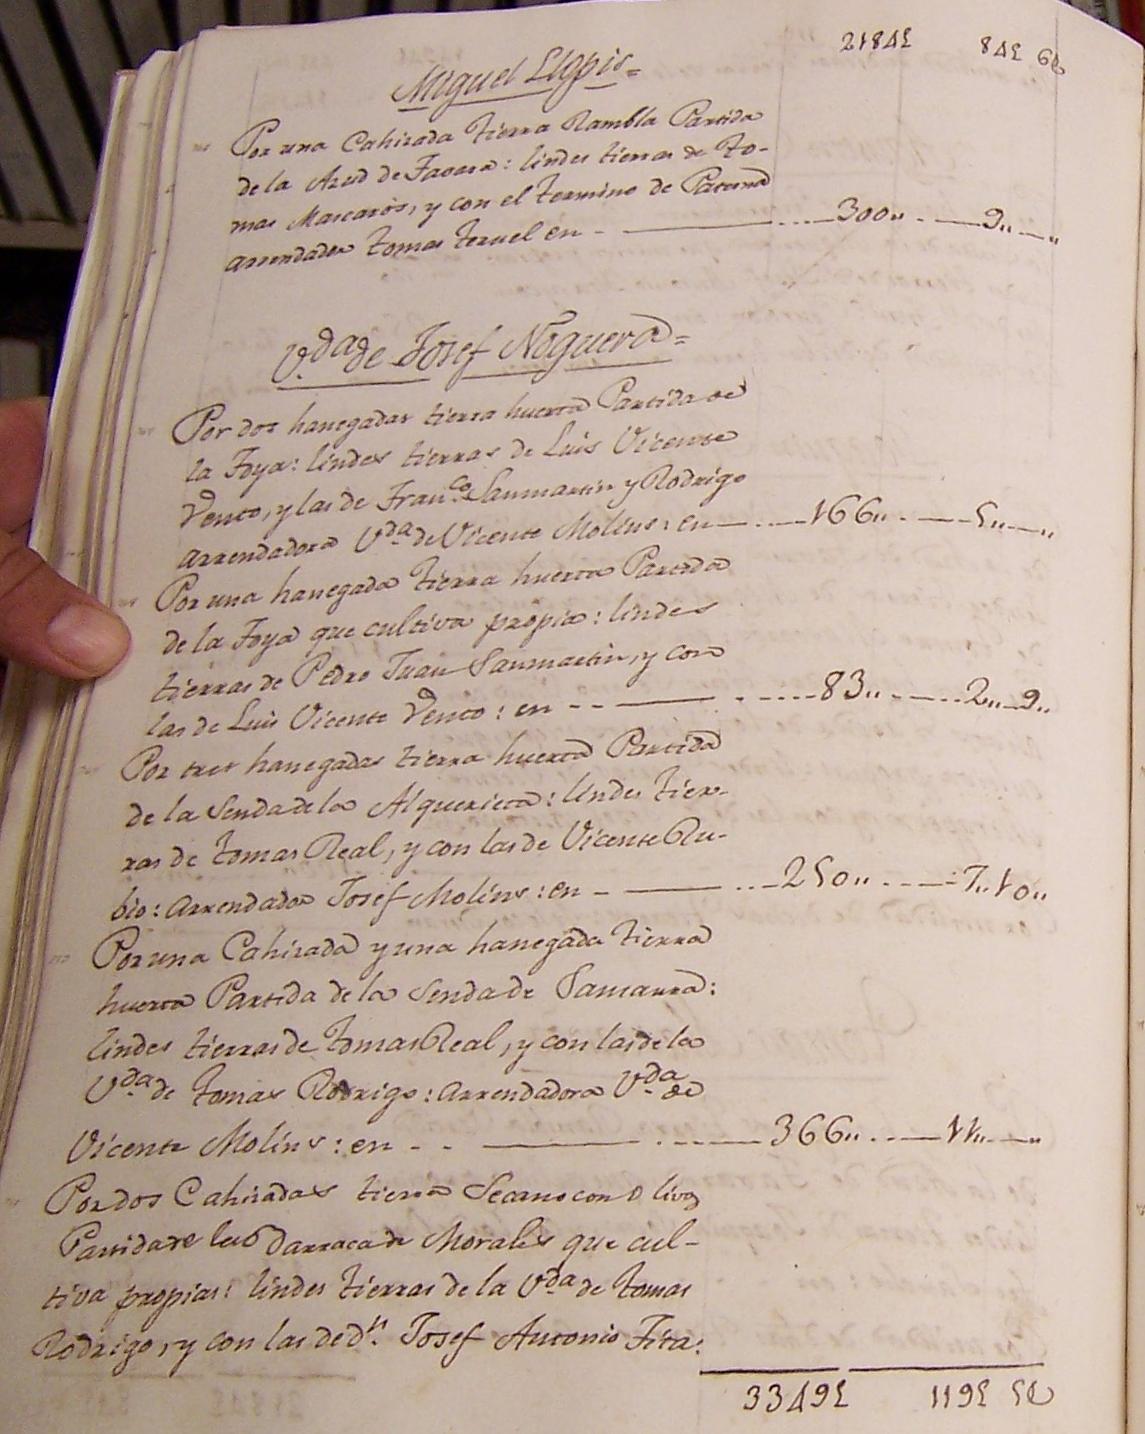 2184£ 84£ 9§
Miguel Llopis =
Por una Cahizada tierra Rambla Partida
de la Azud de Favara: lindes tierras de To-
mas Mascaròs, y con el termino de Paterna
arrendador tomas teruel en - 300,, 9,, ,,
V.da de Josef Noguera =
Por dos hanegadas tierra huerta Partida de
la Foya: lindes tierras de Luis Vicente
Vento, y las de Fran.co Sanmartin y Rodrigo
arrendadora V.da de Vicente Molins: en 166,, 5,, ,,
Por una hanegada tierra huerta Partida
de la Foya que cultiva propia: lindes
tierras de Pedro Juan Sanmartin, y con
las de Luis Vicente Vento: en 83,, 2,, 9,,
Por tres hanegadas tierra huerta Partida
de la Senda de la Alquerieta: lindes tier-
ras de tomas Real, y con las de Vicente Ru-
bio: arrendador Josef Molins: en 250,, 7,, 10,,
Por una Cahizada y una hanegada tierra
huerta Partida de la Senda de Samarra:
lindes tierras de tomas Real, y con las de la
V.da de tomas Rodrigo: arrendadora V.da de
Vicente Molins: en 366,, 11,, ,,
Por dos Cahizadas tierra Secano con olivos
Partida de la Barraca de Morales que cul-
tiva propias: lindes tierras de la V.da de tomas
Rodrigo, y con las de d.n Josef Antonio Fita:
3349£ 119£ 5§